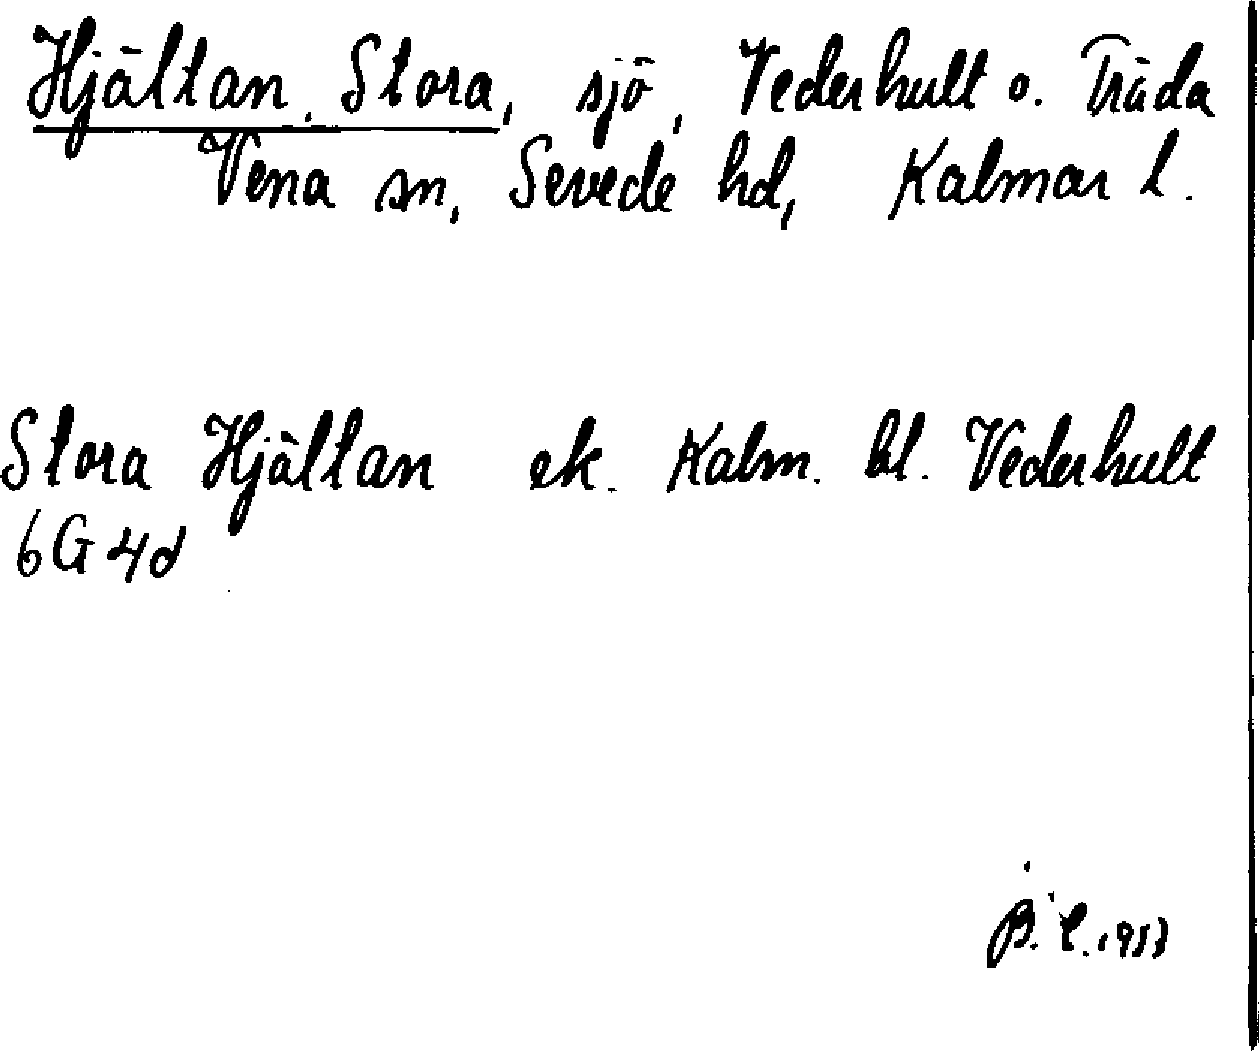 Hjältan, Stora, sjö, Vederhult o. Träda
Vena sn, Sevede hd, Kalmar l.
Stora Hjältan ek. Kalm. bl. Vederhult
6G 4d